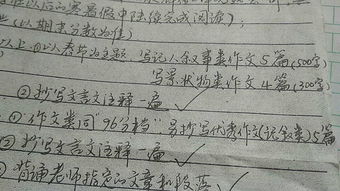 以后的寒暑假中陆续完成阅读）；
（以期末分数为准）
以上①以春节为主题 写记人叙事类作文5篇（500字）
写景状物类作文4篇（300字）
②抄写文言文注释一遍 ✓
①作文类同“96分档”，另抄写优秀作文（记叙类）5篇
②抄写文言文注释一遍 ✓
背诵老师指定的文章和段落 ✓